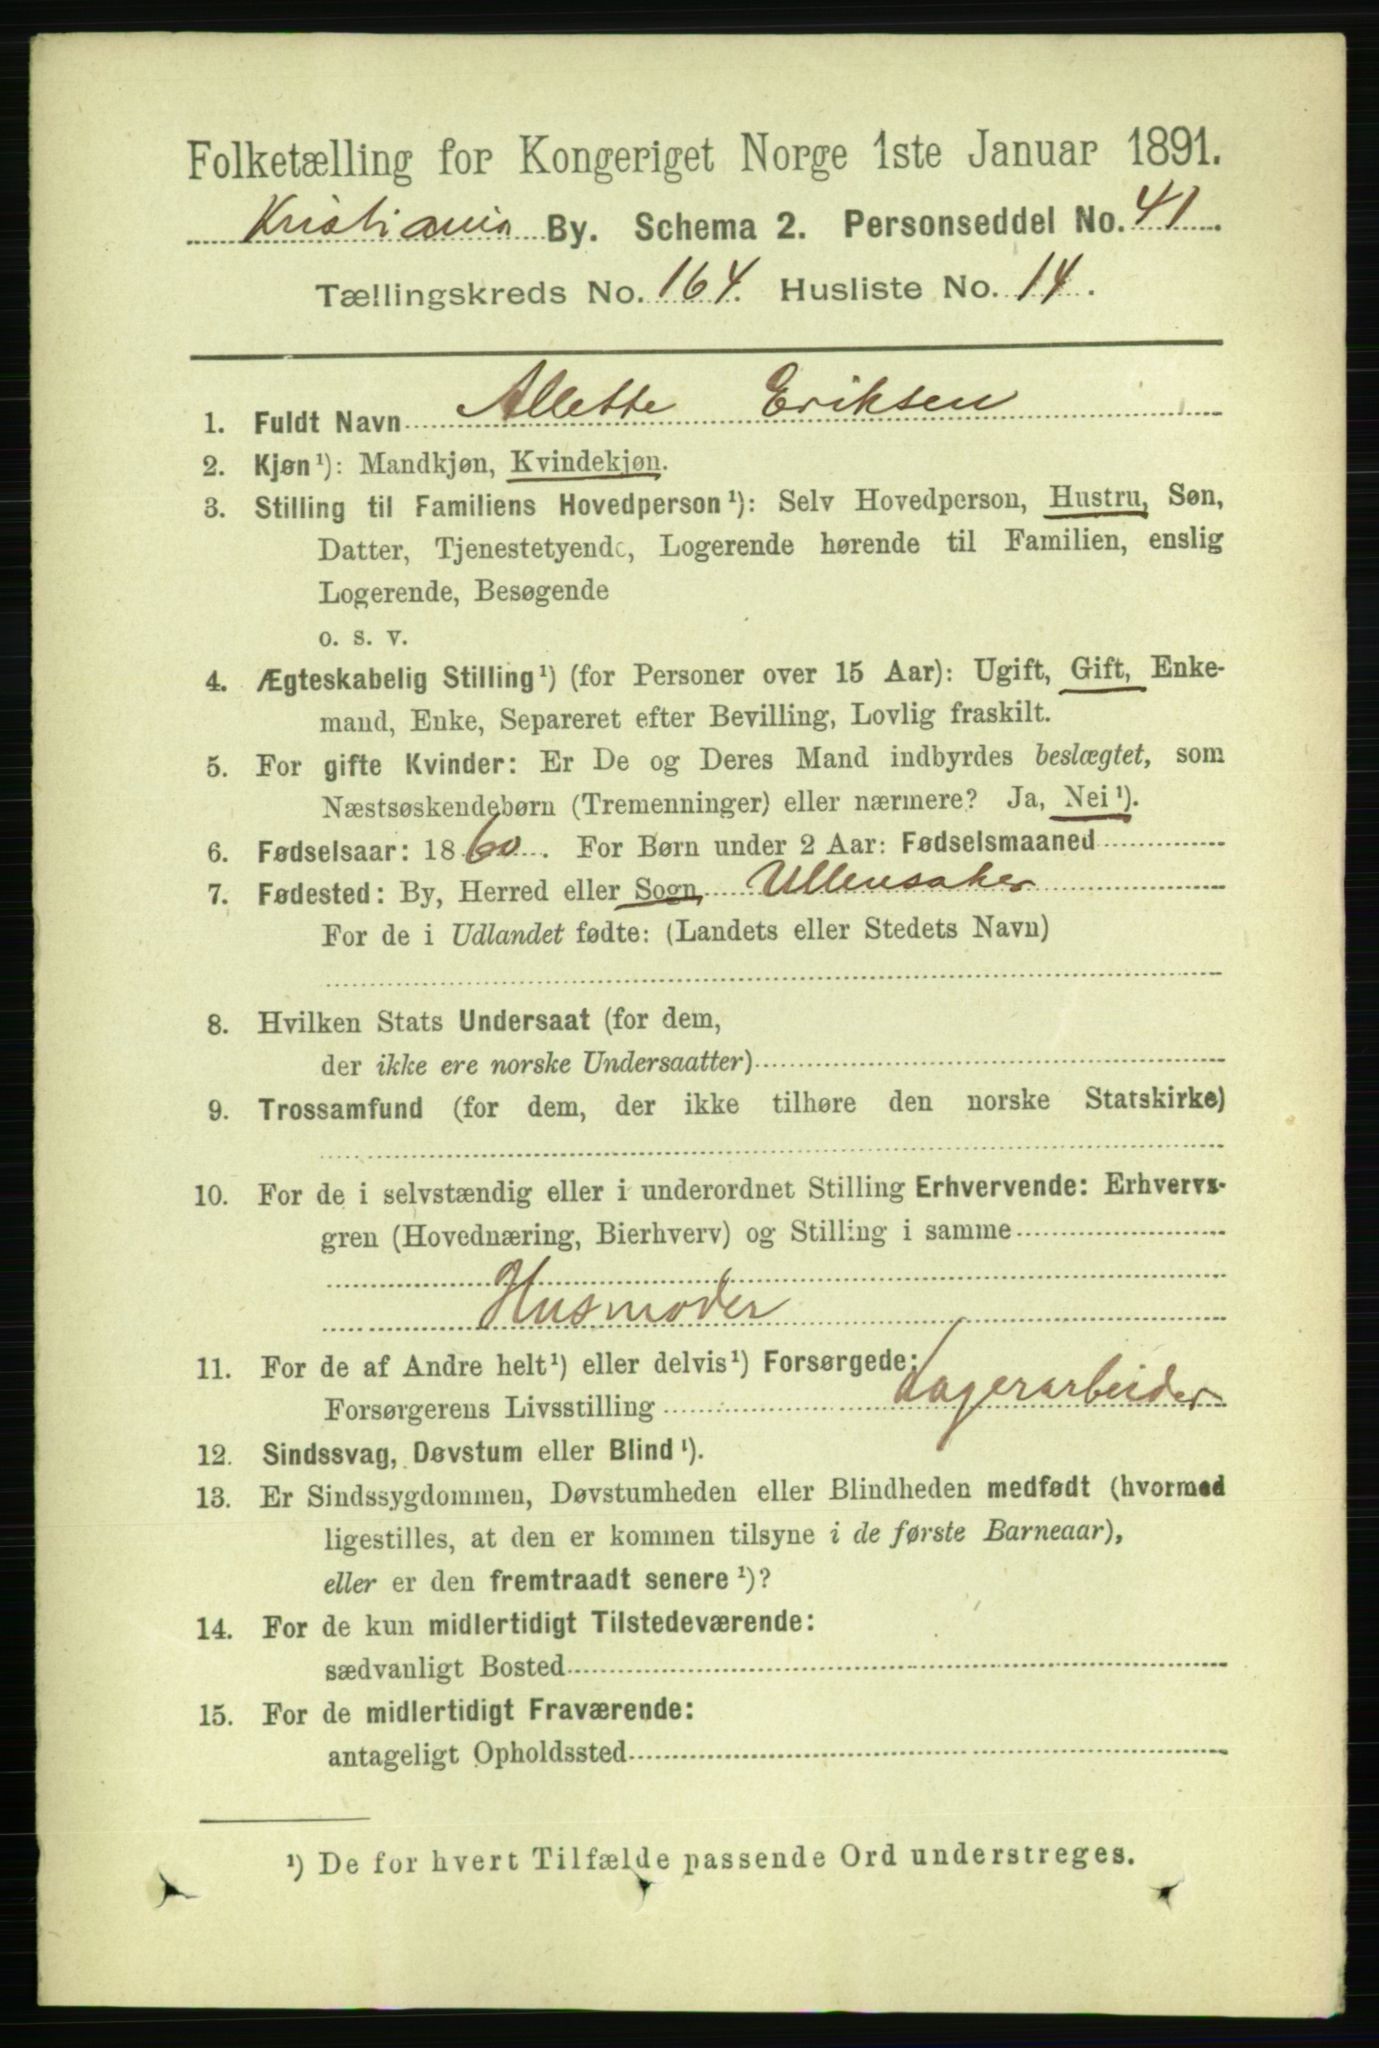 Folketælling for Kongeriget Norge 1ste Januar 1891.
Kristiania By. Schema 2. Personseddel No. 41.
Tællingskreds No. 164. Husliste No. 14.
1. Fuldt Navn Allette Eriksen
2. Kjøn¹): Mandkjøn, Kvindekjøn.
3. Stilling til Familiens Hovedperson¹): Selv Hovedperson, Hustru, Søn,
Datter, Tjenestetyende, Logerende hørende til Familien, enslig
Logerende, Besøgende
o. s. v.
4. Ægteskabelig Stilling¹) (for Personer over 15 Aar): Ugift, Gift, Enke-
mand, Enke, Separeret efter Bevilling, Lovlig fraskilt.
5. For gifte Kvinder: Er De og Deres Mand indbyrdes beslægtet, som
Næstsøskendebørn (Tremenninger) eller nærmere? Ja, Nei¹).
6. Fødselsaar: 1860. For Børn under 2 Aar: Fødselsmaaned
7. Fødested: By, Herred eller Sogn Ullensaker
For de i Udlandet fødte: (Landets eller Stedets Navn)
8. Hvilken Stats Undersaat (for dem,
der ikke ere norske Undersaatter)
9. Trossamfund (for dem, der ikke tilhøre den norske Statskirke)
10. For de i selvstændig eller i underordnet Stilling Erhvervende: Erhvervs-
gren (Hovednæring, Bierhverv) og Stilling i samme
Husmoder
11. For de af Andre helt¹) eller delvis¹) Forsørgede:
Forsørgerens Livsstilling Lagerarbeider
12. Sindssvag, Døvstum eller Blind¹).
13. Er Sindssygdommen, Døvstumheden eller Blindheden medfødt (hvormed
ligestilles, at den er kommen tilsyne i de første Barneaar),
eller er den fremtraadt senere¹)?
14. For de kun midlertidigt Tilstedeværende:
sædvanligt Bosted
15. For de midlertidigt Fraværende:
antageligt Opholdssted
¹) De for hvert Tilfælde passende Ord understreges.